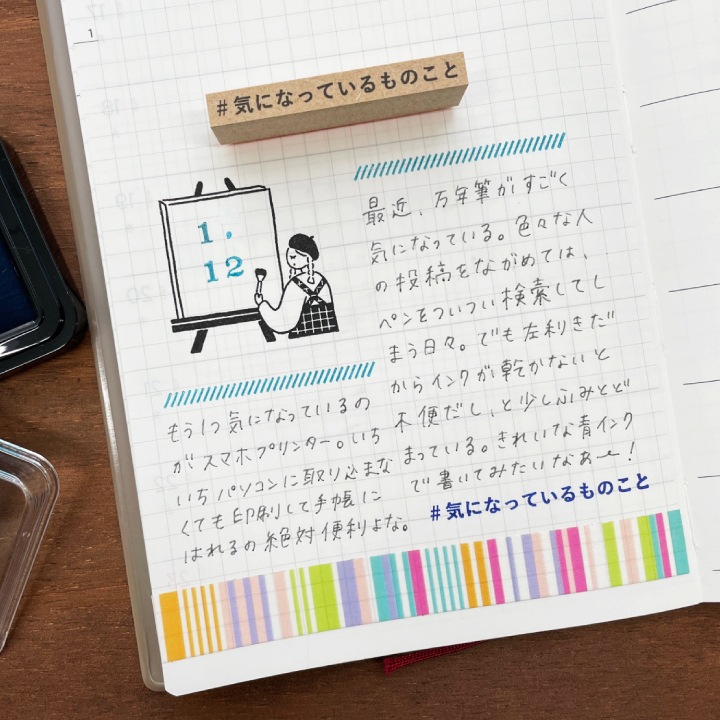 1
#気になっているものこと
1.
12
最近、万年筆がすごく
気になっている。色々な人
の投稿をながめては、
ペンをついつい検索してし
まう日々。でも左利きだ
からインクが乾かないと
不便だし、と少しふみとど
まっている。きれいな青インク
で書いてみたいなあ〜！
#気になっているものこと
もう1つ気になっているの
がスマホプリンター。いち
いちパソコンに取り込まな
くても印刷して手帳に
はれるの絶対便利よな。